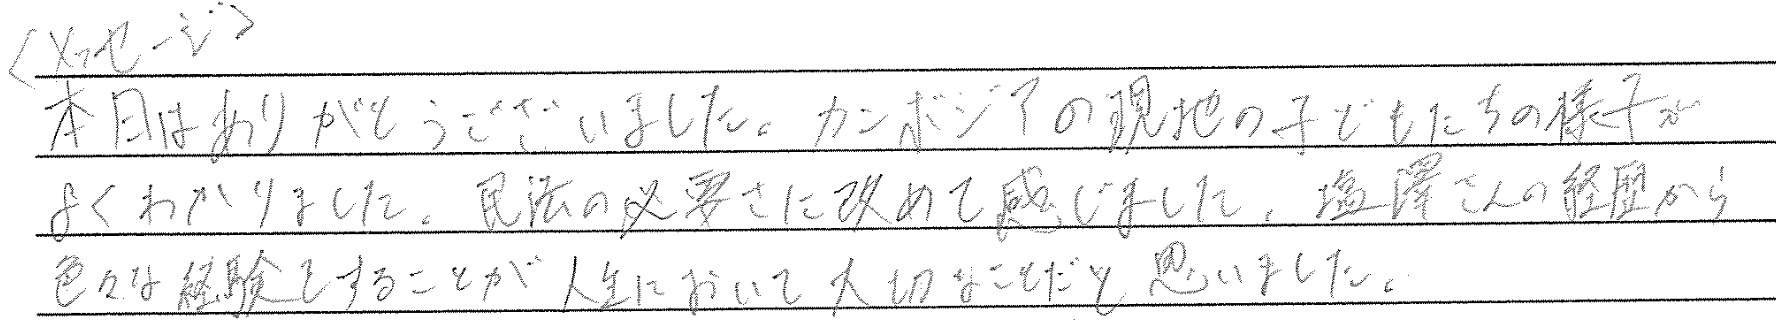 <メッセージ>
本日はありがとうございました。カンボジアの現地の子どもたちの様子が
よくわかりました。民法の必要さに改めて感じました。塩澤さんの経歴から
色々な経験をすることが人生において大切なことだと思いました。